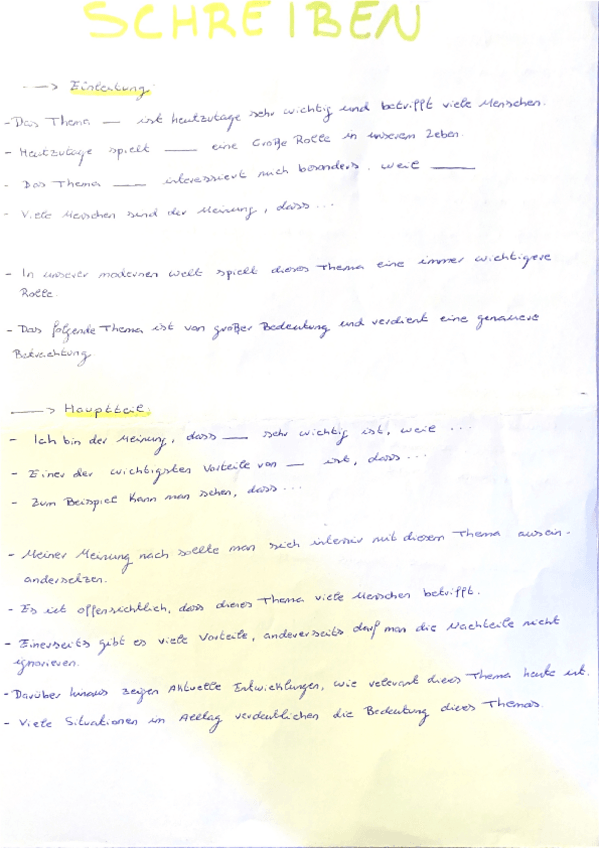 SCHREIBEN
---> Einleitung:
- Das Thema ___ ist heutzutage sehr wichtig und betrifft viele Menschen.
- Heutzutage spielt ___ eine Große Rolle in unserem Leben.
- Das Thema ___ interessiert mich besonders, weil ___
- Viele Menschen sind der Meinung, dass ...
- In unserer modernen Welt spielt dieses Thema eine immer wichtigere
Rolle.
- Das folgende Thema ist von großer Bedeutung und verdient eine genauere
Betrachtung
---> Hauptteil:
- Ich bin der Meinung, dass ___ sehr wichtig ist, weil ...
- Einer der wichtigsten Vorteile von ___ ist, dass ...
- Zum Beispiel kann man sehen, dass ...
- Meiner Meinung nach sollte man sich intensiv mit diesem Thema ausein-
andersetzen.
- Es ist offensichtlich, dass dieses Thema viele Menschen betrifft.
- Einerseits gibt es viele Vorteile, andererseits darf man die Nachteile nicht
ignorieren.
- Darüber hinaus zeigen Aktuelle Entwicklungen, wie relevant dieses Thema heute ist.
- Viele Situationen im Alltag verdeutlichen die Bedeutung dieses Themas.